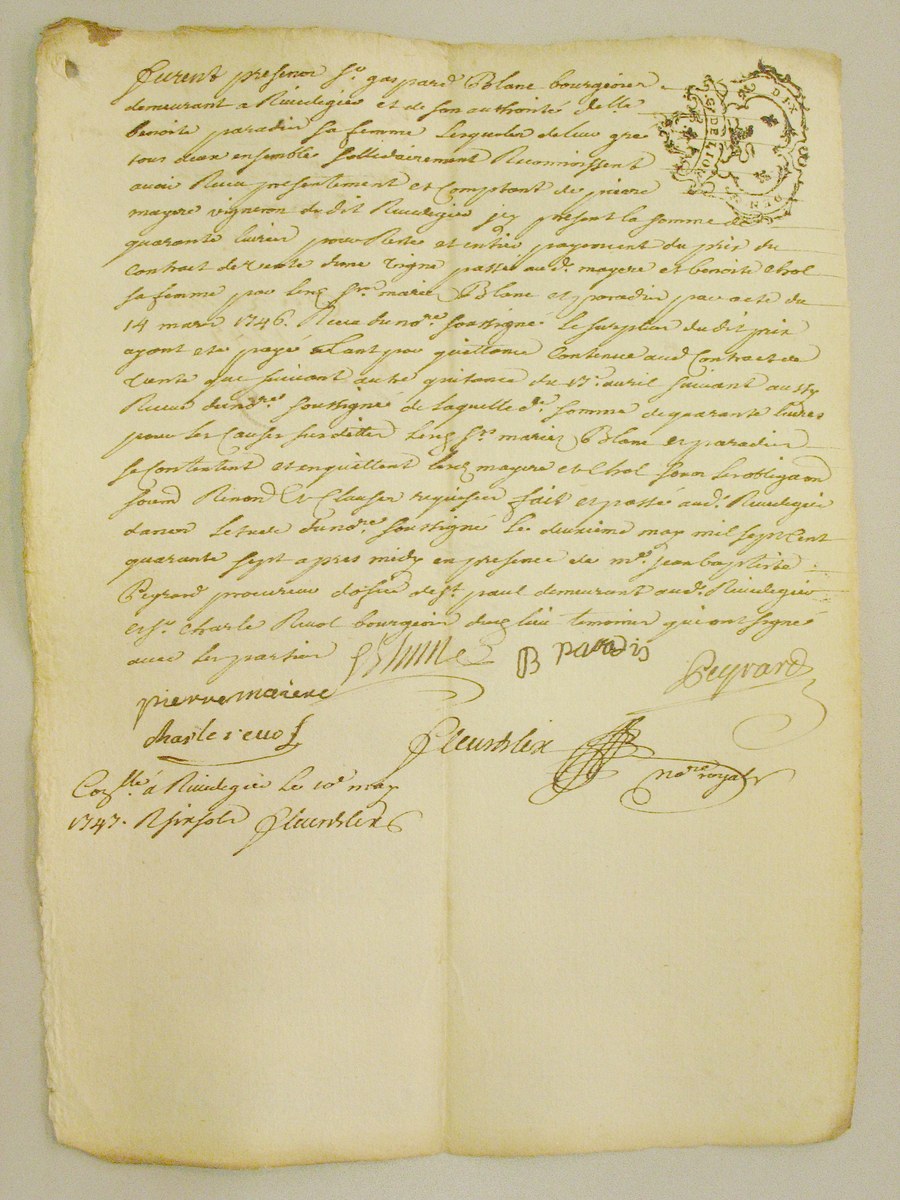 furent presens Sr gaspard Blanc bourgeois
demeurant a Rivedegier et de son authorité dlle
benoite paradis sa femme lesquels de leur gre
tous deux ensemble sollidairement Reconnoissent
avoir Receu presentement et Comptant de pierre
mayere vigneron dudit Rivedegier icy present la somme de
quarante livres pour Reste et entier payement du prix du
Contract de vente dune vigne passé aud. mayere et benoite Chol
sa femme par lesd Srs mariés Blanc et paradis par acte du
14 mars 1746. Receu du nore soussigné le surplus dudit prix
ayant eté payé tant par quittance Contenue aud Contract de
vente que suivant autre quitance du 17e avril suivant aussy
Receue du nore soussigné de laquelle de somme de quarante livres
pour les Causes susdittes lesd Srs mariés Blanc et paradis
se Contentent et en quittent lesd mayere et Chol sous les obligaon
soum Renond et Clauses requises fait et passé aud. Rivedegier
dans Letude du nore soussigné le deuxieme may mil sept Cent
quarante sept apres midy en presence de me jean baptiste
Peyrard procureur doffice de st paul demeurant aud. Rivedegier
et sr. Charle Revol bourgeois dud lieu temoins qui ont signé
avec les parties
Blanc B paradis Peyrard
pierre maiere
charle revol
fleurdelix nore royal
Conllé á Rivedegier le 10e may
1747. R six sols fleurdelix
DIX
DEN
G. DE LION